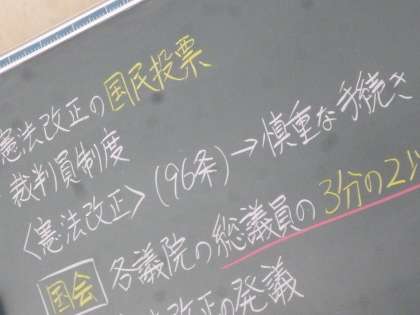 憲法改正の国民投票
・裁判員制度
〈憲法改正〉(96条)→慎重な手続き
国会 各議院の総議員の3分の2以
改正の発議